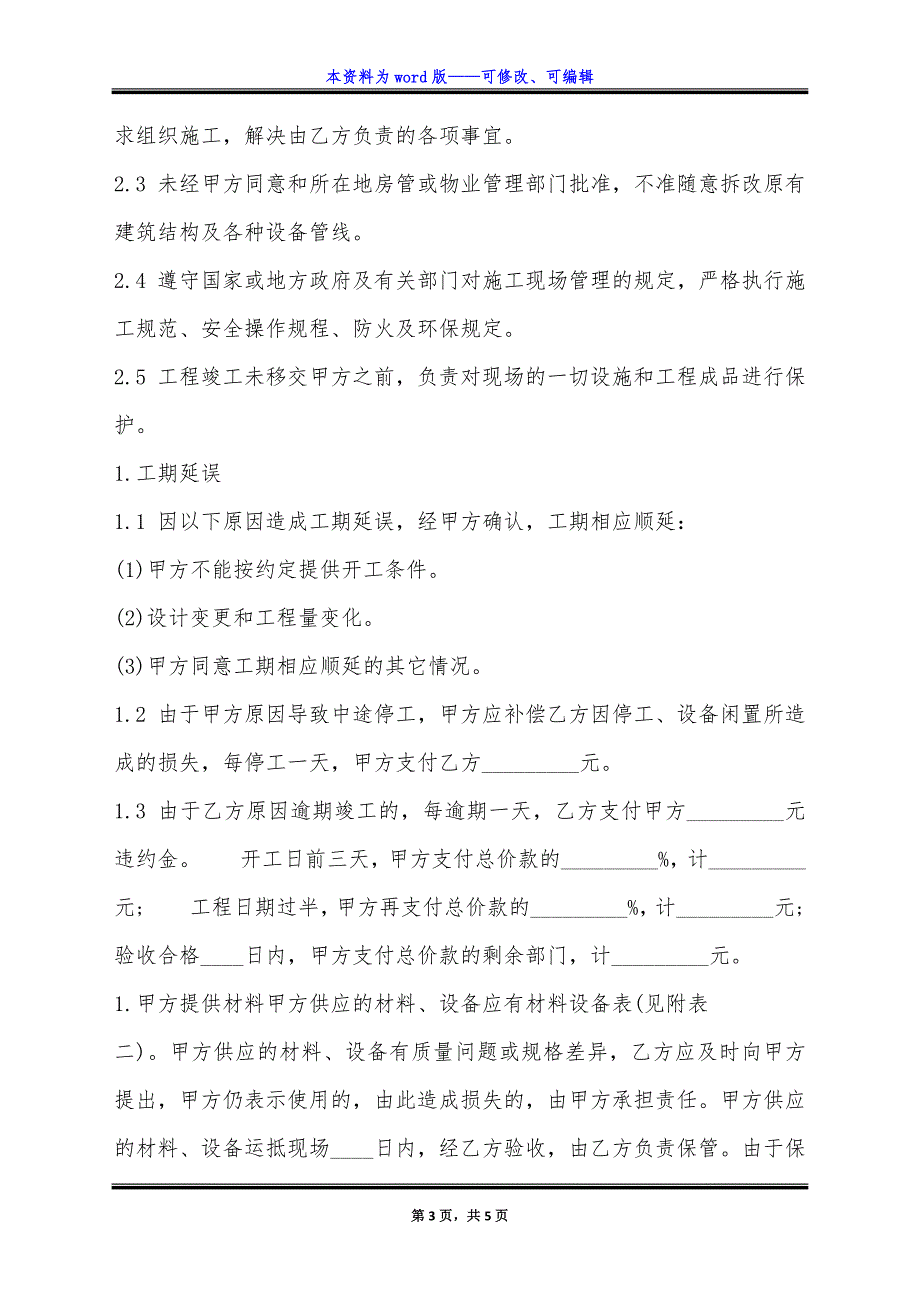 本资料为 word 版——可修改、可编辑
求组织施工，解决由乙方负责的各项事宜。
2.3 未经甲方同意和所在地房管或物业管理部门批准，不准随意拆改原有
建筑结构及各种设备管线。
2.4 遵守国家或地方政府及有关部门对施工现场管理的规定，严格执行施
工规范、安全操作规程、防火及环保规定。
2.5 工程竣工未移交甲方之前，负责对现场的一切设施和工程成品进行保
护。
1.工期延误
1.1 因以下原因造成工期延误，经甲方确认，工期相应顺延：
(1)甲方不能按约定提供开工条件。
(2)设计变更和工程量变化。
(3)甲方同意工期相应顺延的其它情况。
1.2 由于甲方原因导致中途停工，甲方应补偿乙方因停工、设备闲置所造
成的损失，每停工一天，甲方支付乙方_________元。
1.3 由于乙方原因逾期竣工的，每逾期一天，乙方支付甲方_________元
违约金。　　开工日前三天，甲方支付总价款的_________%，计_________
元；　　工程日期过半，甲方再支付总价款的_________%，计_________元；
验收合格____日内，甲方支付总价款的剩余部门，计_________元。
1.甲方提供材料甲方供应的材料、设备应有材料设备表(见附表
二)。甲方供应的材料、设备有质量问题或规格差异，乙方应及时向甲方
提出，甲方仍表示使用的，由此造成损失的，由甲方承担责任。甲方供应
的材料、设备运抵现场____日内，经乙方验收，由乙方负责保管。由于保
第 3 页，共 5 页